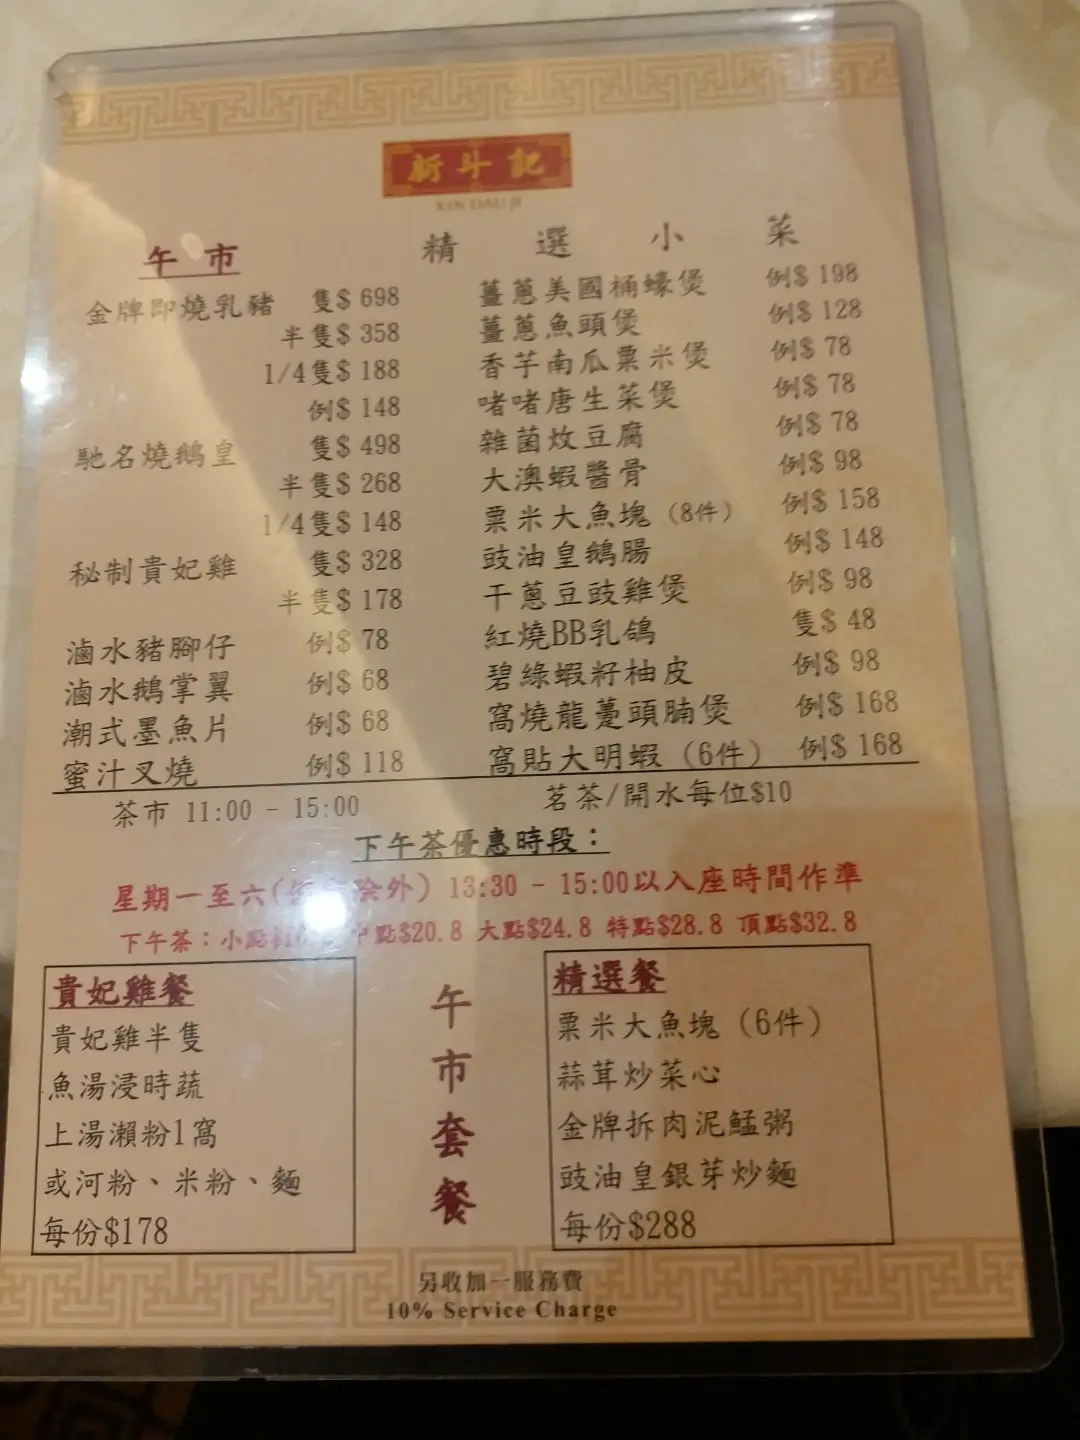 新斗記
XIN DAU JI
午市
精選小菜
金牌即燒乳豬 隻$ 698
半隻$ 358
1/4隻$ 188
例$ 148
馳名燒鵝皇 隻$ 498
半隻$ 268
1/4隻$ 148
秘制貴妃雞 隻$ 328
半隻$ 178
滷水豬腳仔 例$ 78
滷水鵝掌翼 例$ 68
潮式墨魚片 例$ 68
蜜汁叉燒 例$ 118
薑蔥美國桶蠔煲 例$ 198
薑蔥魚頭煲 例$ 128
香芋南瓜粟米煲 例$ 78
啫啫唐生菜煲 例$ 78
雜菌炆豆腐 例$ 78
大澳蝦醬骨 例$ 98
粟米大魚塊 (8件) 例$ 158
豉油皇鵝腸 例$ 148
干蔥豆豉雞煲 例$ 98
紅燒BB乳鴿 隻$ 48
碧綠蝦籽柚皮 例$ 98
窩燒龍躉頭腩煲 例$ 168
窩貼大明蝦 (6件) 例$ 168
茶市 11:00 - 15:00
茗茶/開水每位$10
下午茶優惠時段：
星期一至六( 除外) 13:30 - 15:00以入座時間作準
下午茶：小點 中點$20.8 大點$24.8 特點$28.8 頂點$32.8
貴妃雞餐
貴妃雞半隻
魚湯浸時蔬
上湯瀨粉1窩
或河粉、米粉、麵
每份$178
午市套餐
精選餐
粟米大魚塊 (6件)
蒜茸炒菜心
金牌拆肉泥鯭粥
豉油皇銀芽炒麵
每份$288
另收加一服務費
10% Service Charge